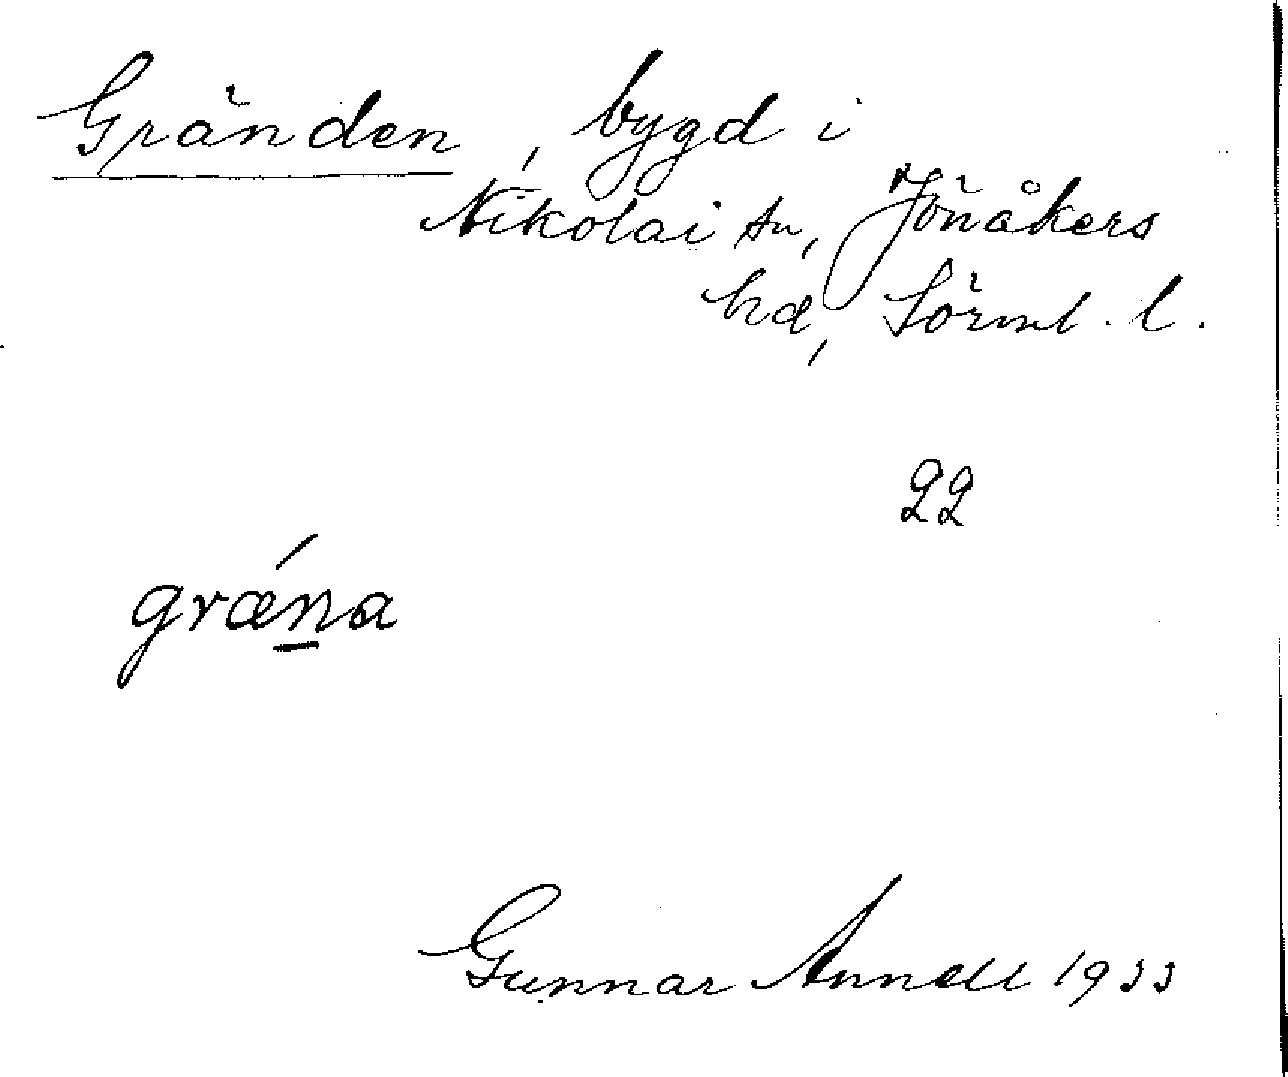 Gränden, bygd i
Nikolai sn, Jönåkers
hd, Sörml. l.
22
grǽn̲a
Gunnar Annell 1933